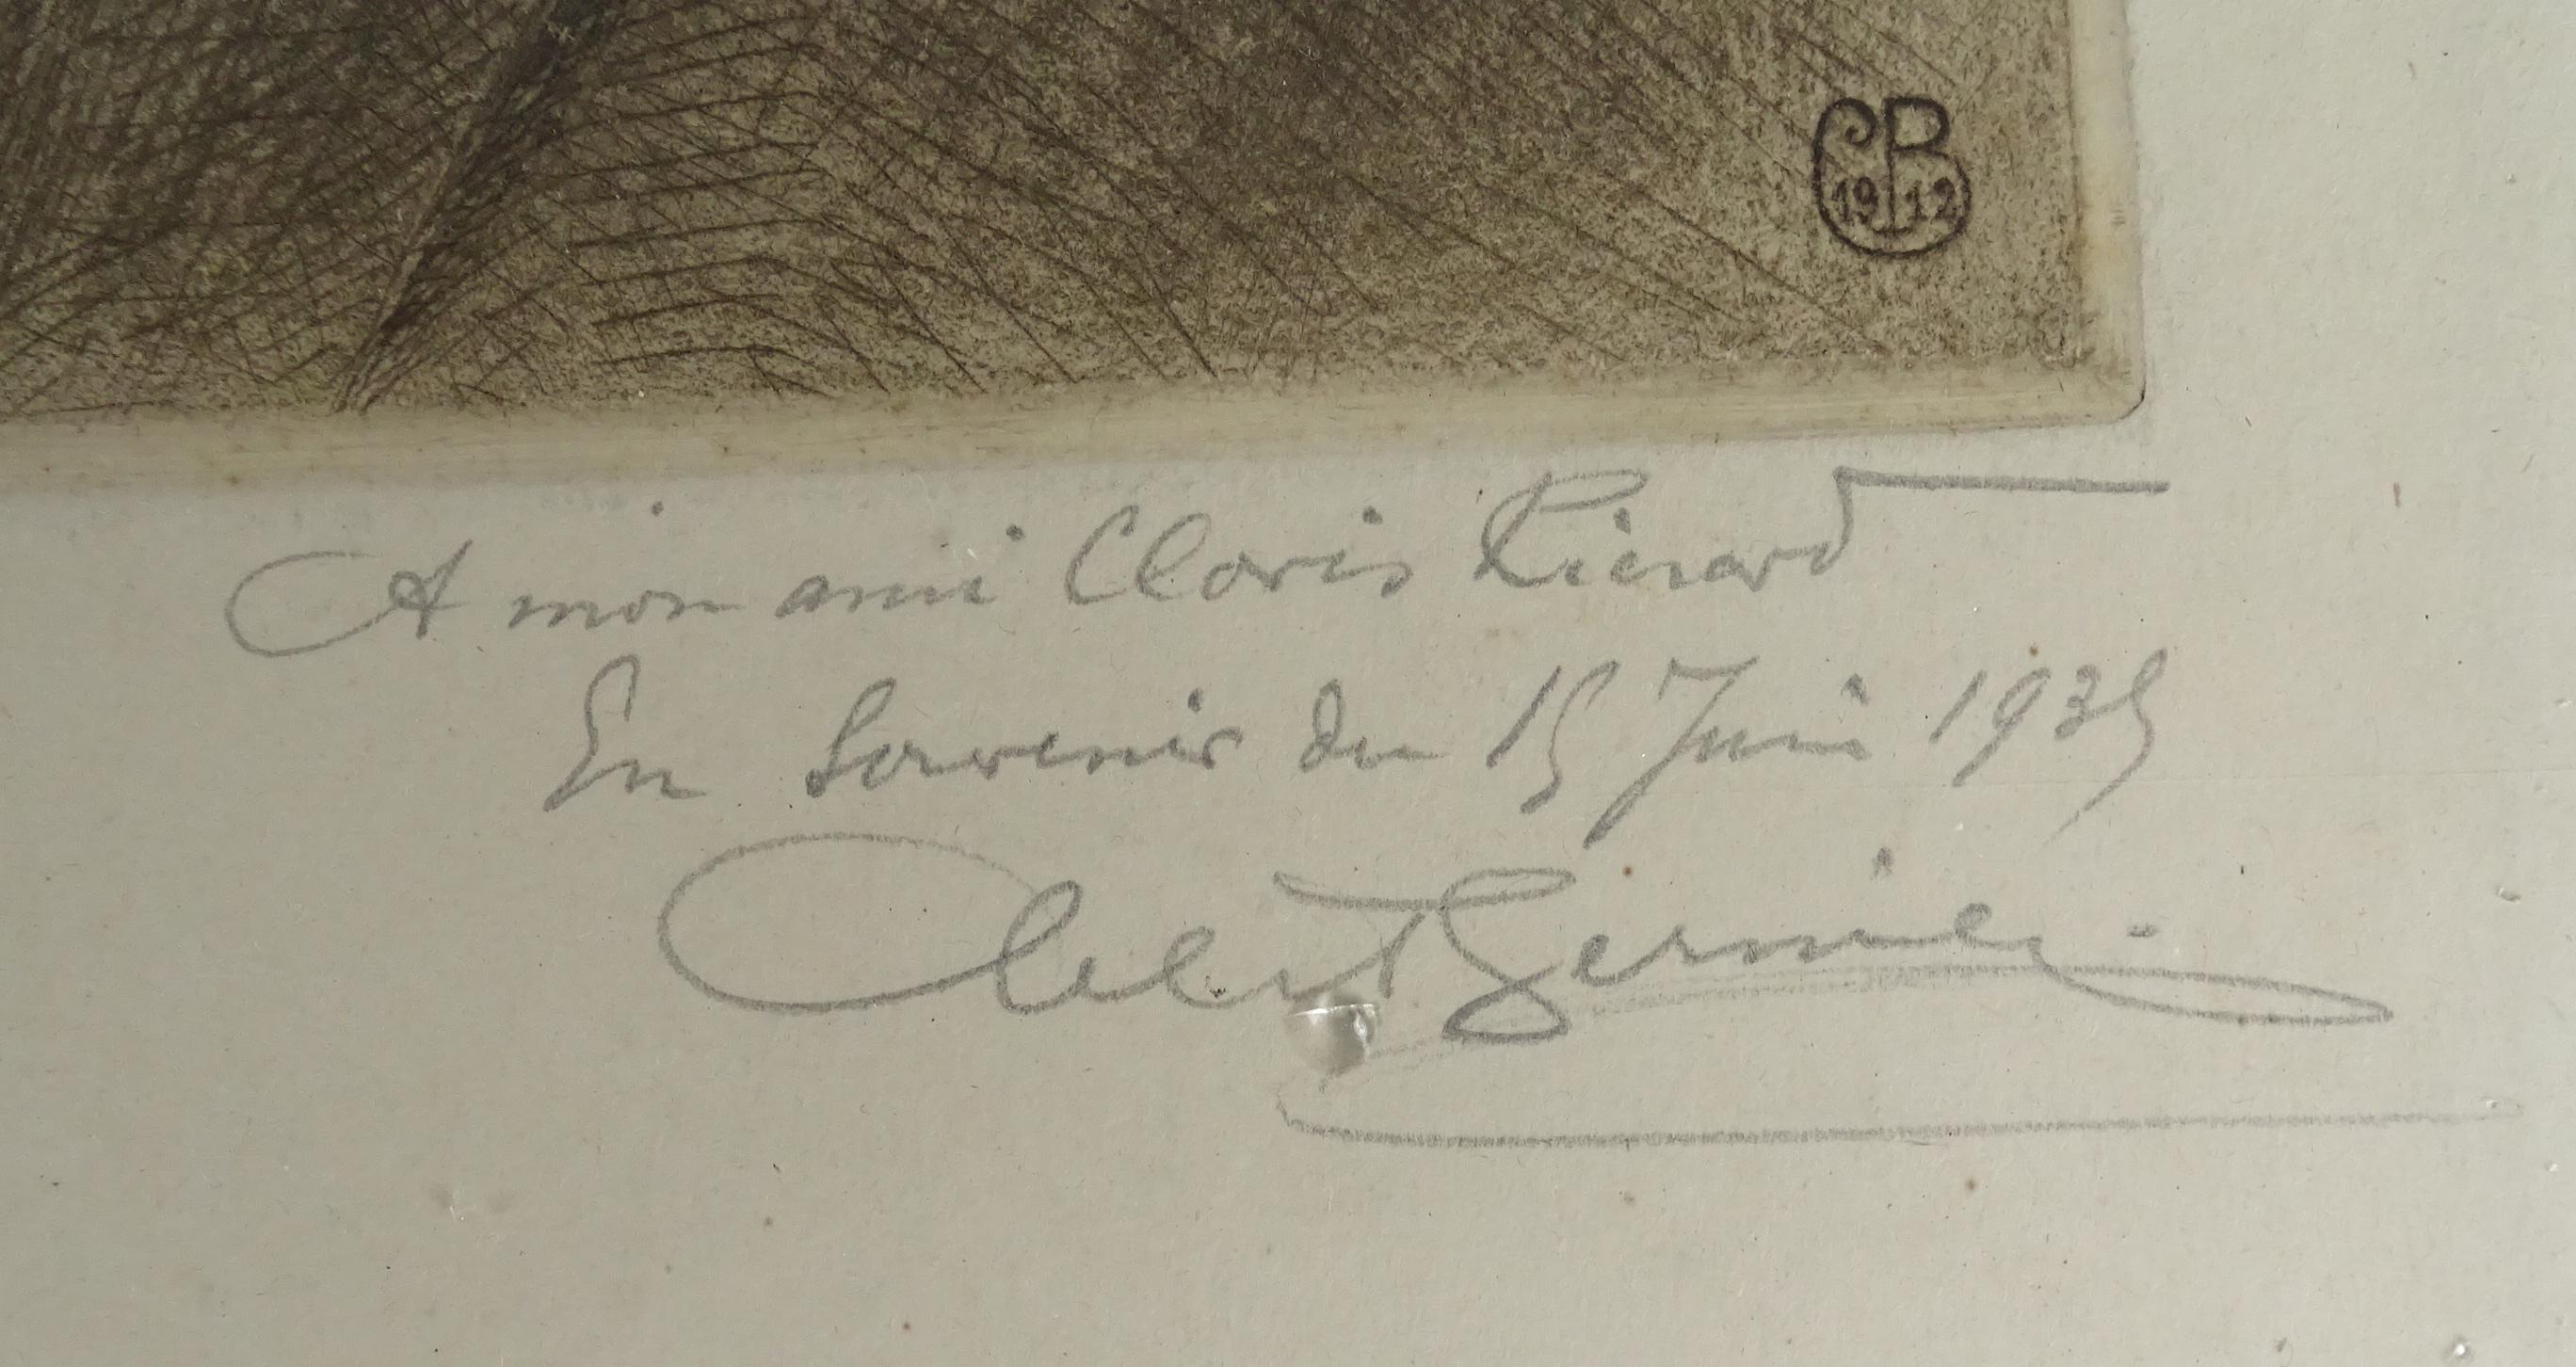 CB
19 12
A mon ami Clovis Piérard
En Souvenir du 15 Juin 1935
Albert Gernier.